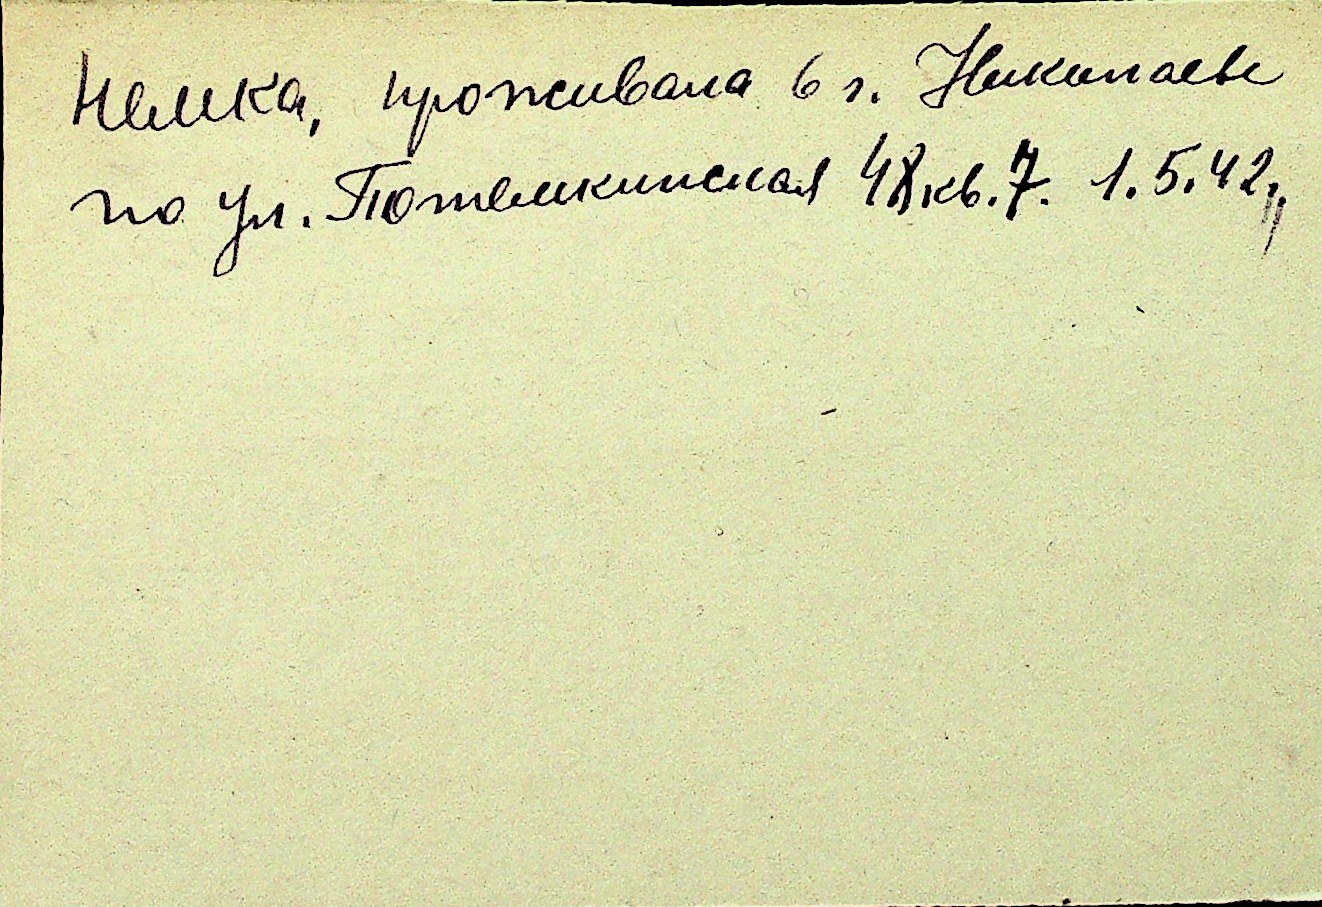 Немка, проживала в г. Николаеве
по ул. Потемкинская 48 кв. 7. 1.5.42.